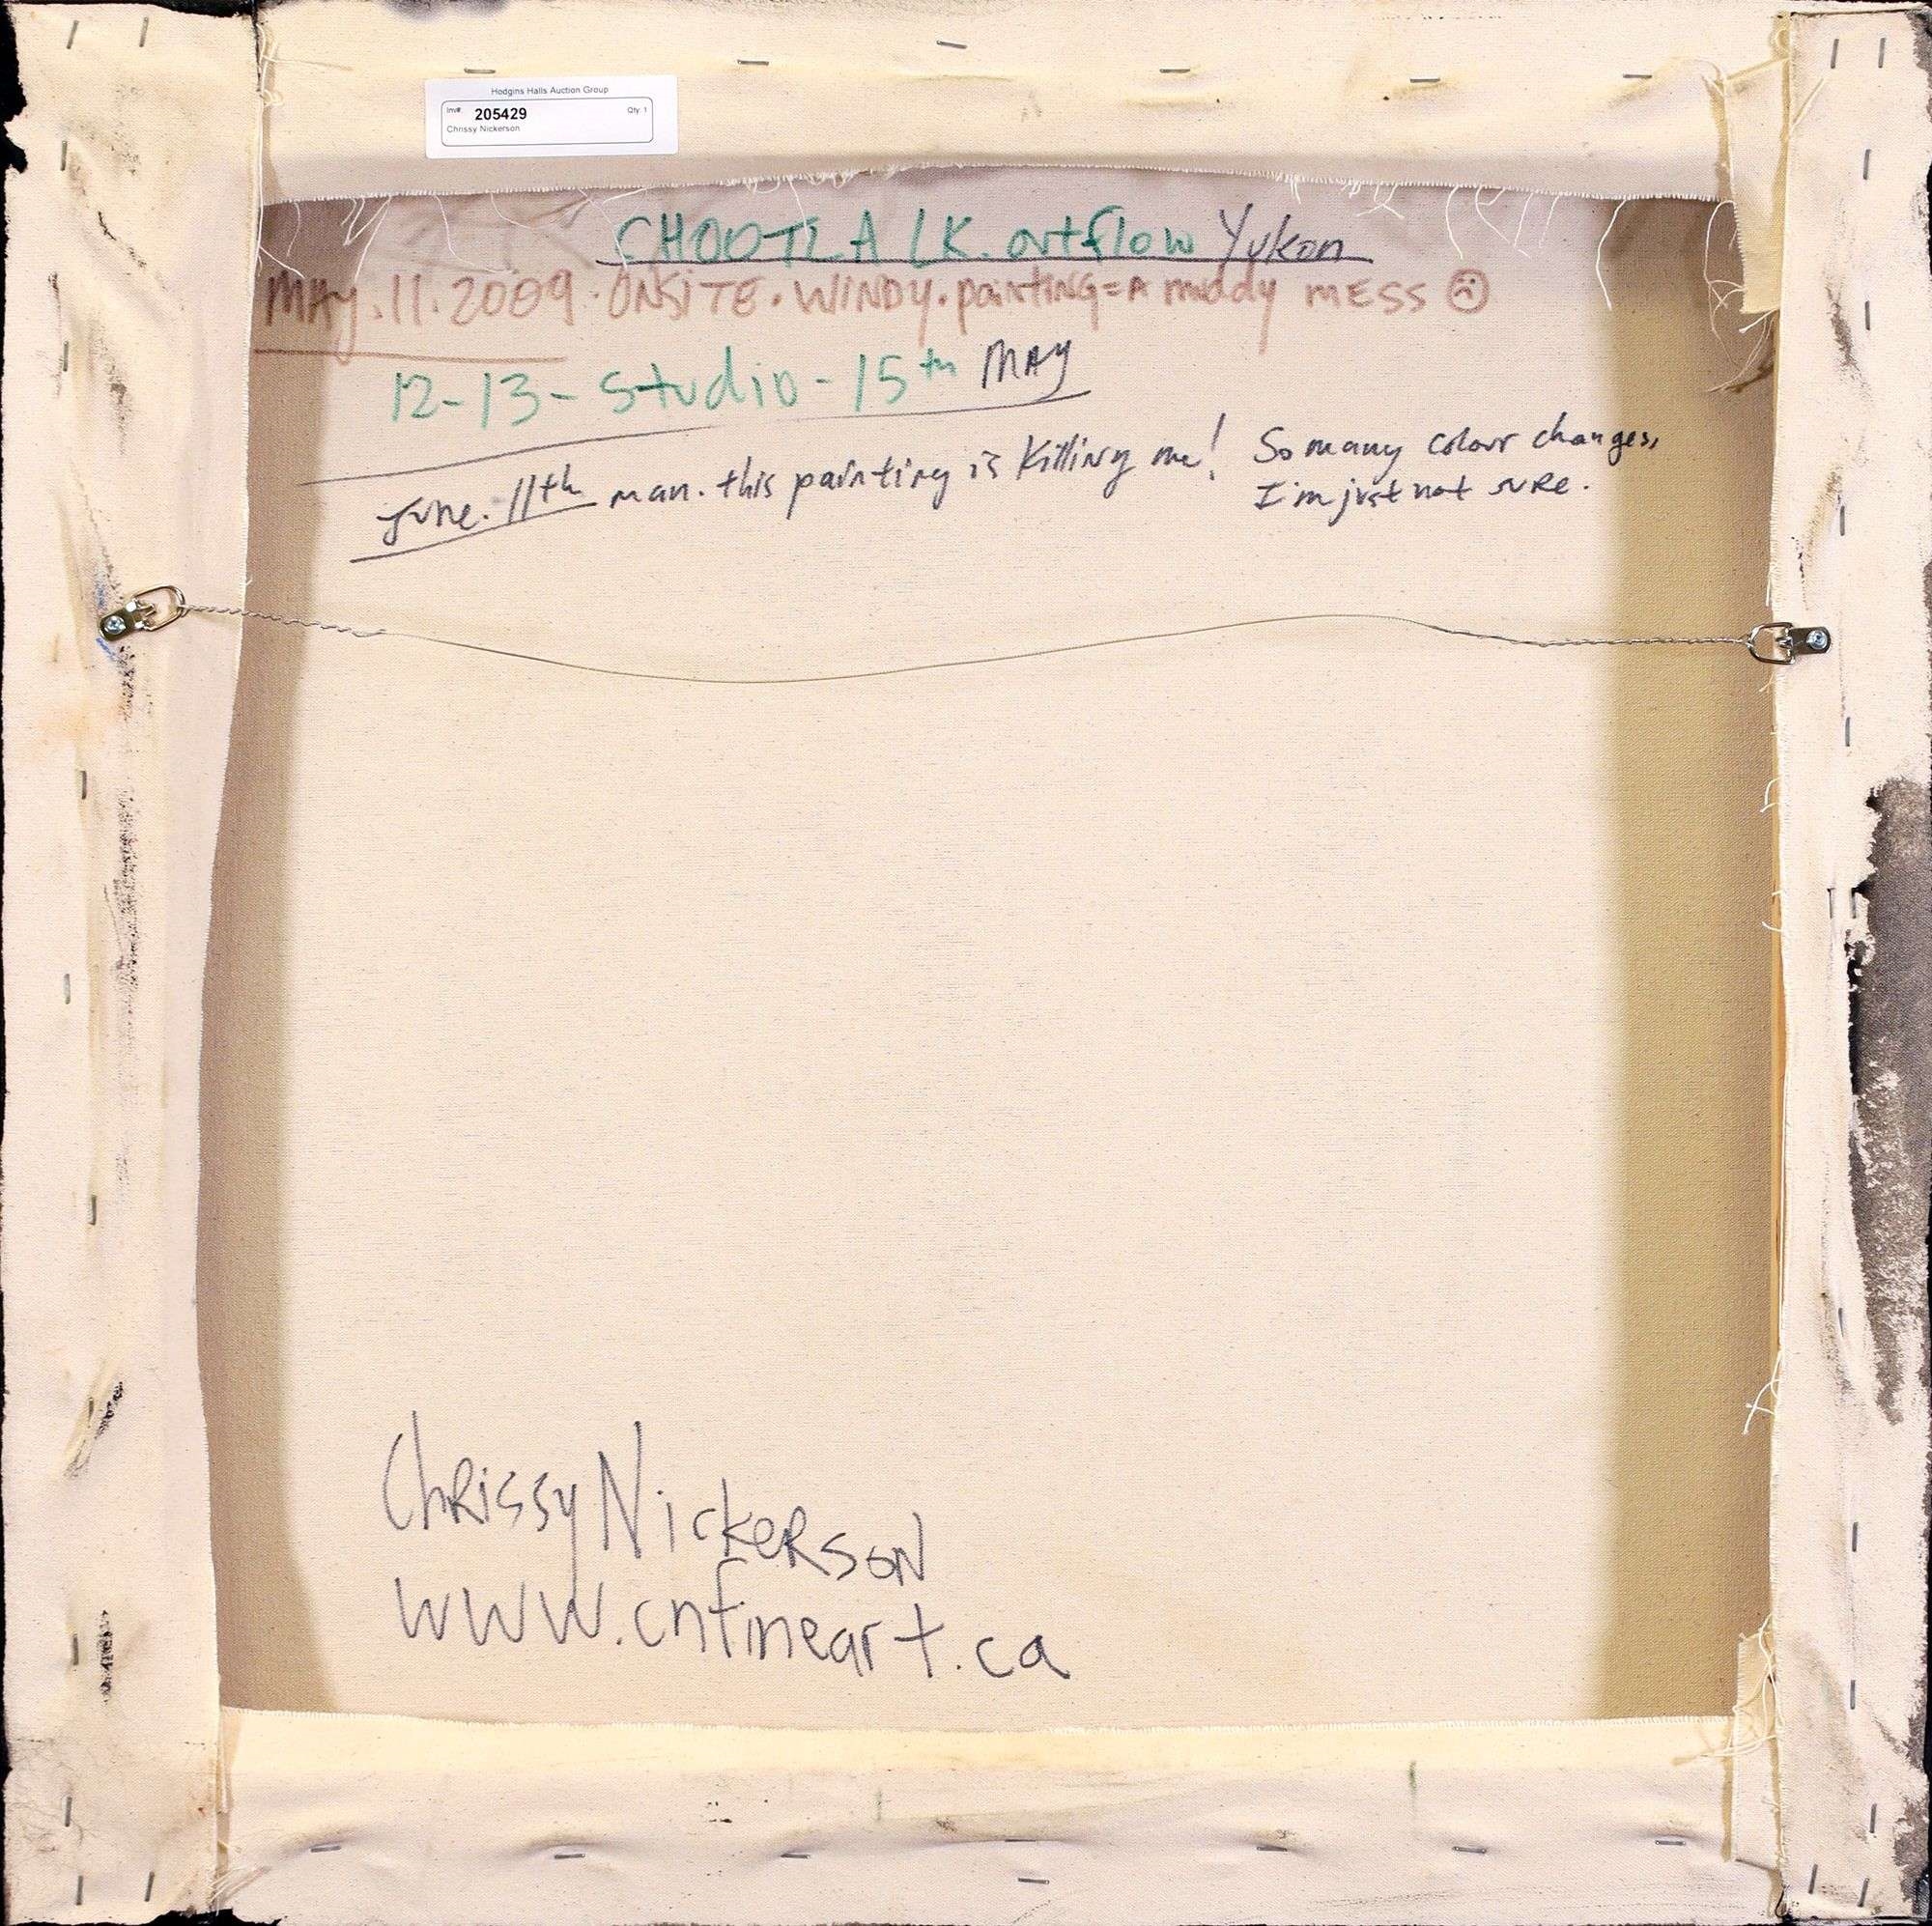 Hodgins Halls Auction Group
Inv#: 205429 Qty: 1
Chrissy Nickerson
CHOOTLA LK. outflow Yukon
MAY.11.2009. ONSITE. WINDY. painting = A muddy MESS ☹
12-13- studio - 15th MAY
june. 11th man. this painting is killing me! So many colour changes,
I'm just not sure.
Chrissy Nickerson
www.cnfineart.ca